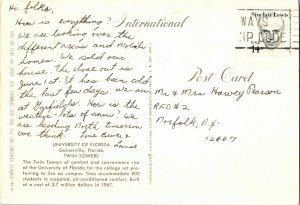 Hi folks,
How is everything?
We are looking over the
different areas and mobile
homes. We sold our
house. The close out is
June 1st. It has been cold
the last few days. We are
at Garfields. How is the
weather - lots of snow? We
are heading North tomorrow
we think. Love
International
Sinclair Lewis
WAYS
ZIP CODE
Post Card
Mr & Mrs Harvey Pearson
RFD #2
Norfolk, N.Y.
13667
UNIVERSITY OF FLORIDA
Gainesville, Florida
TWIN TOWERS
The Twin Towers of comfort and convenience rise
at the University of Florida for the college set pre-
ferring to live on campus. They accommodate 800
students in carpeted, air-conditioned comfort. Built
at a cost of 3.7 million dollars in 1967.